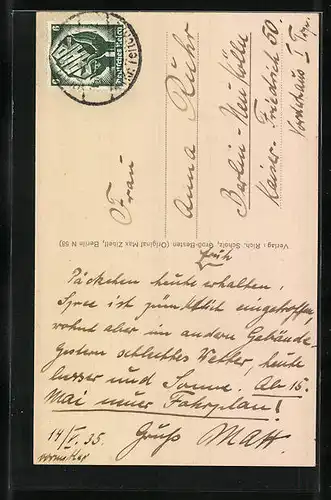 Deutsches Reich
6 6
Frau
Anna Ruhr
Berlin-Neukölln
Kaiser-Friedrich 50.
Vorderhaus I Trp.
Verlag: Rich. Scholz, Groß-Besten (Original Max Zibell, Berlin N 58)
früh
Päckchen heute erhalten.
Spree ist pünktlich eingetroffen,
wohnt aber im andern Gebäude.
Gestern schlechtes Wetter, heute
besser und Sonne. Ab 15.
Mai neuer Fahrplan!
14/5.35. Gruß